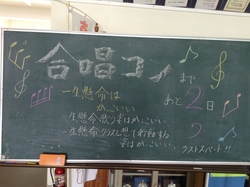 合唱コンまで
あと2日
一生懸命は
かっこいい
生懸命歌う事はかっこいい
生懸命クラスを想って行動する
事はかっこいい。
ラストスパート!!